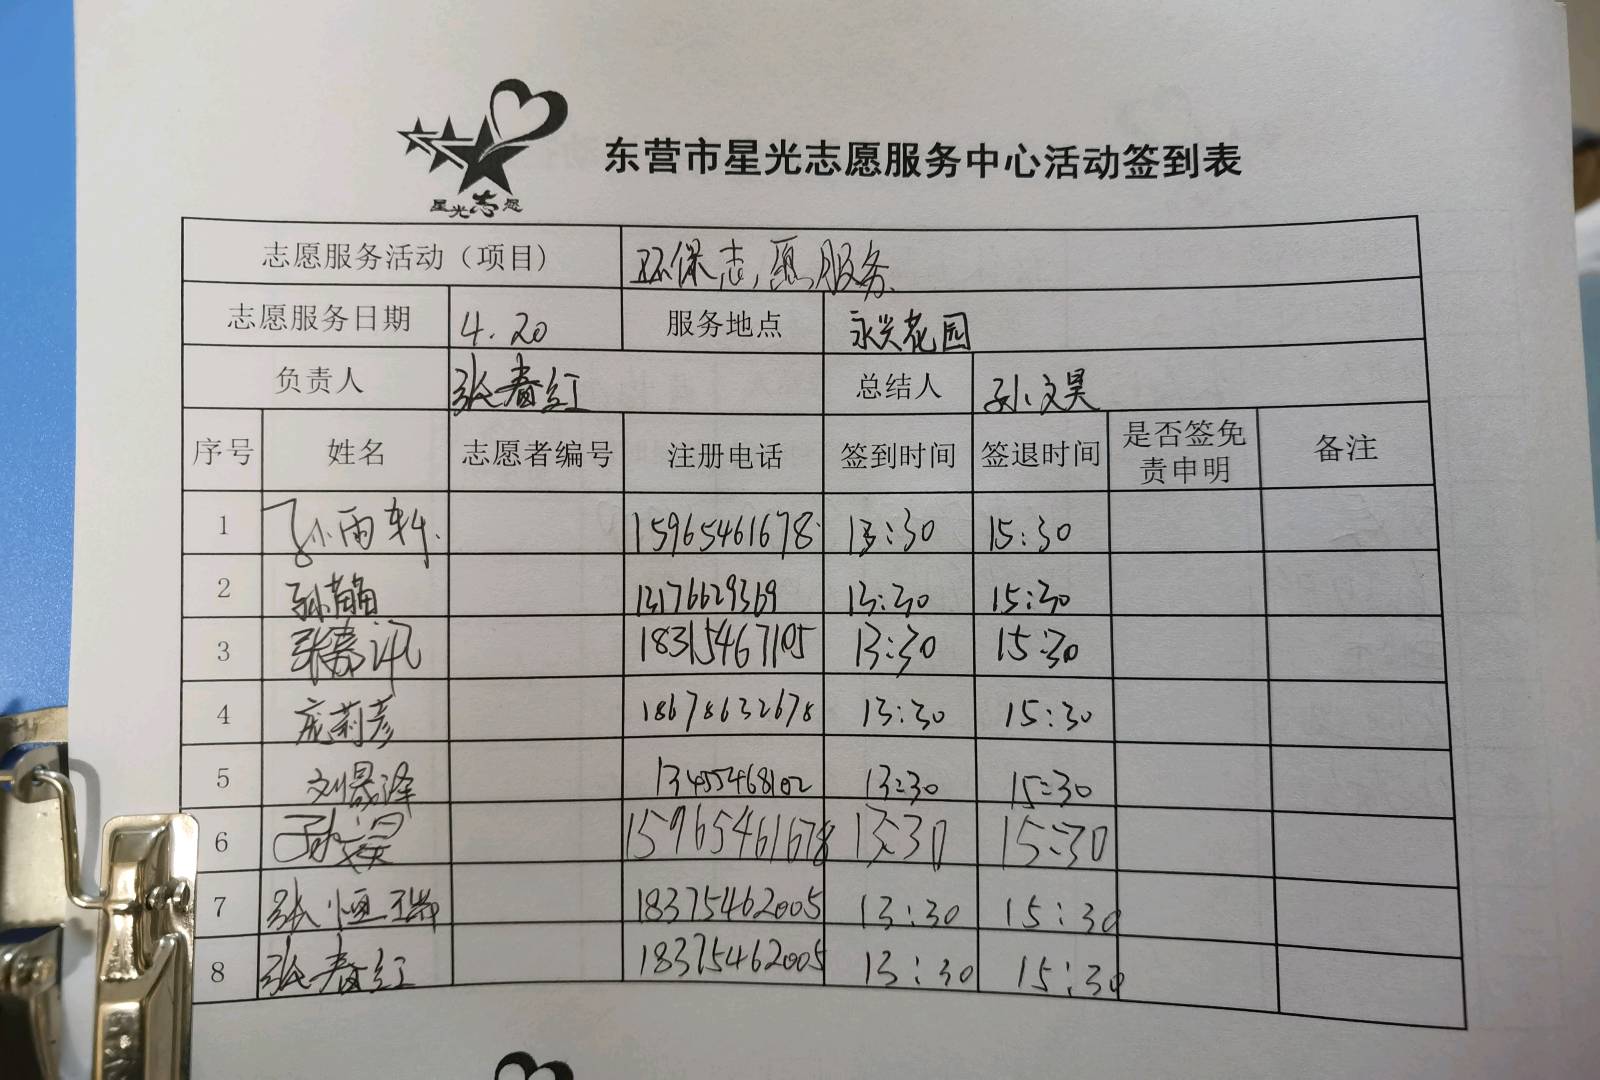 星光志愿
东营市星光志愿服务中心活动签到表
志愿服务活动（项目） 环保志愿服务
志愿服务日期 4.20 服务地点 永兴花园
负责人 张春红 总结人 孙文昊
序号 姓名 志愿者编号 注册电话 签到时间 签退时间 是否签免责申明 备注
1 孙雨轩 15965461678 13:30 15:30
2 13176629369 13:30 15:30
3 18315467105 13:30 15:30
4 庞莉彦 18678632678 13:30 15:30
5 刘晟泽 13:30 15:30
6 15965461678 13:30 15:30
7 张恒瑞 18375462005 13:30 15:30
8 张春红 18375462005 13:30 15:30